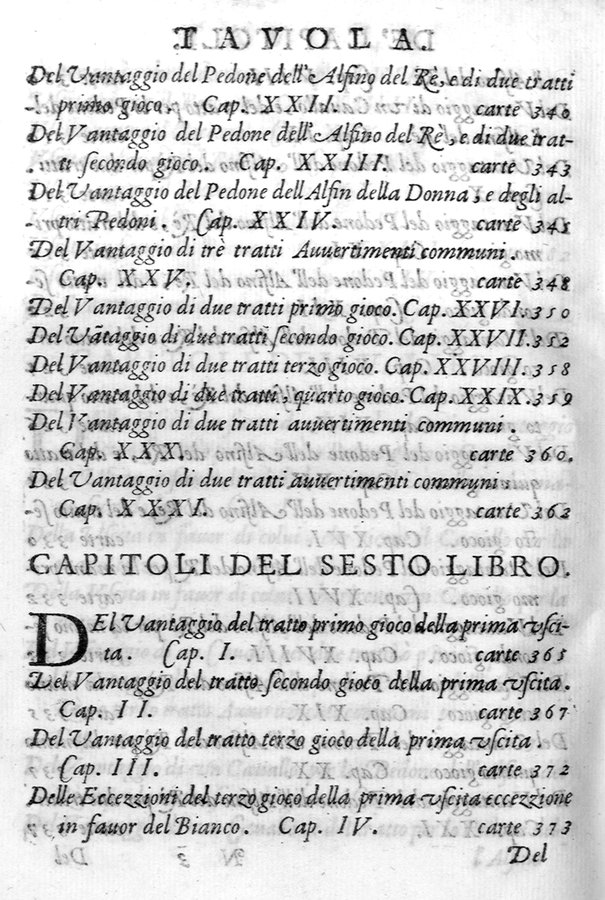 TAVOLA.
Del Vantaggio del Pedone dell'Alfino del Rè, e di due tratti
primo gioco. Cap. XXII. carte 340
Del Vantaggio del Pedone dell'Alfino del Re, e di due trat-
ti secondo gioco. Cap. XXIII. carte 343
Del Vantaggio del Pedone dell Alfin della Donna, e degli al-
tri Pedoni. Cap. XXIV. carte 345
Del Vantaggio di trè tratti Auuertimenti communi.
Cap. XXV. carte 348
Del Vantaggio di due tratti primo gioco. Cap. XXVI. 350
Del Vãtaggio di due tratti secondo gioco. Cap. XXVII. 352
Del Vantaggio di due tratti terzo gioco. Cap. XXVIII. 358
Del Vantaggio di due tratti, quarto gioco. Cap. XXIX. 359
Del Vantaggio di due tratti auuertimenti communi.
Cap. XXX. carte 360.
Del Vantaggio di due tratti auuertimenti communi.
Cap. XXXI. carte 362
CAPITOLI DEL SESTO LIBRO.
DEl Vantaggio del tratto primo gioco della prima vsci-
ta. Cap. I. carte 365
Del Vantaggio del tratto secondo gioco della prima vscita.
Cap. II. carte 367
Del Vantaggio del tratto terzo gioco della prima vscita.
Cap. III. carte 372
Delle Eccezzioni del terzo gioco della prima vscita eccezzione
in fauor del Bianco. Cap. IV. carte 373
Del